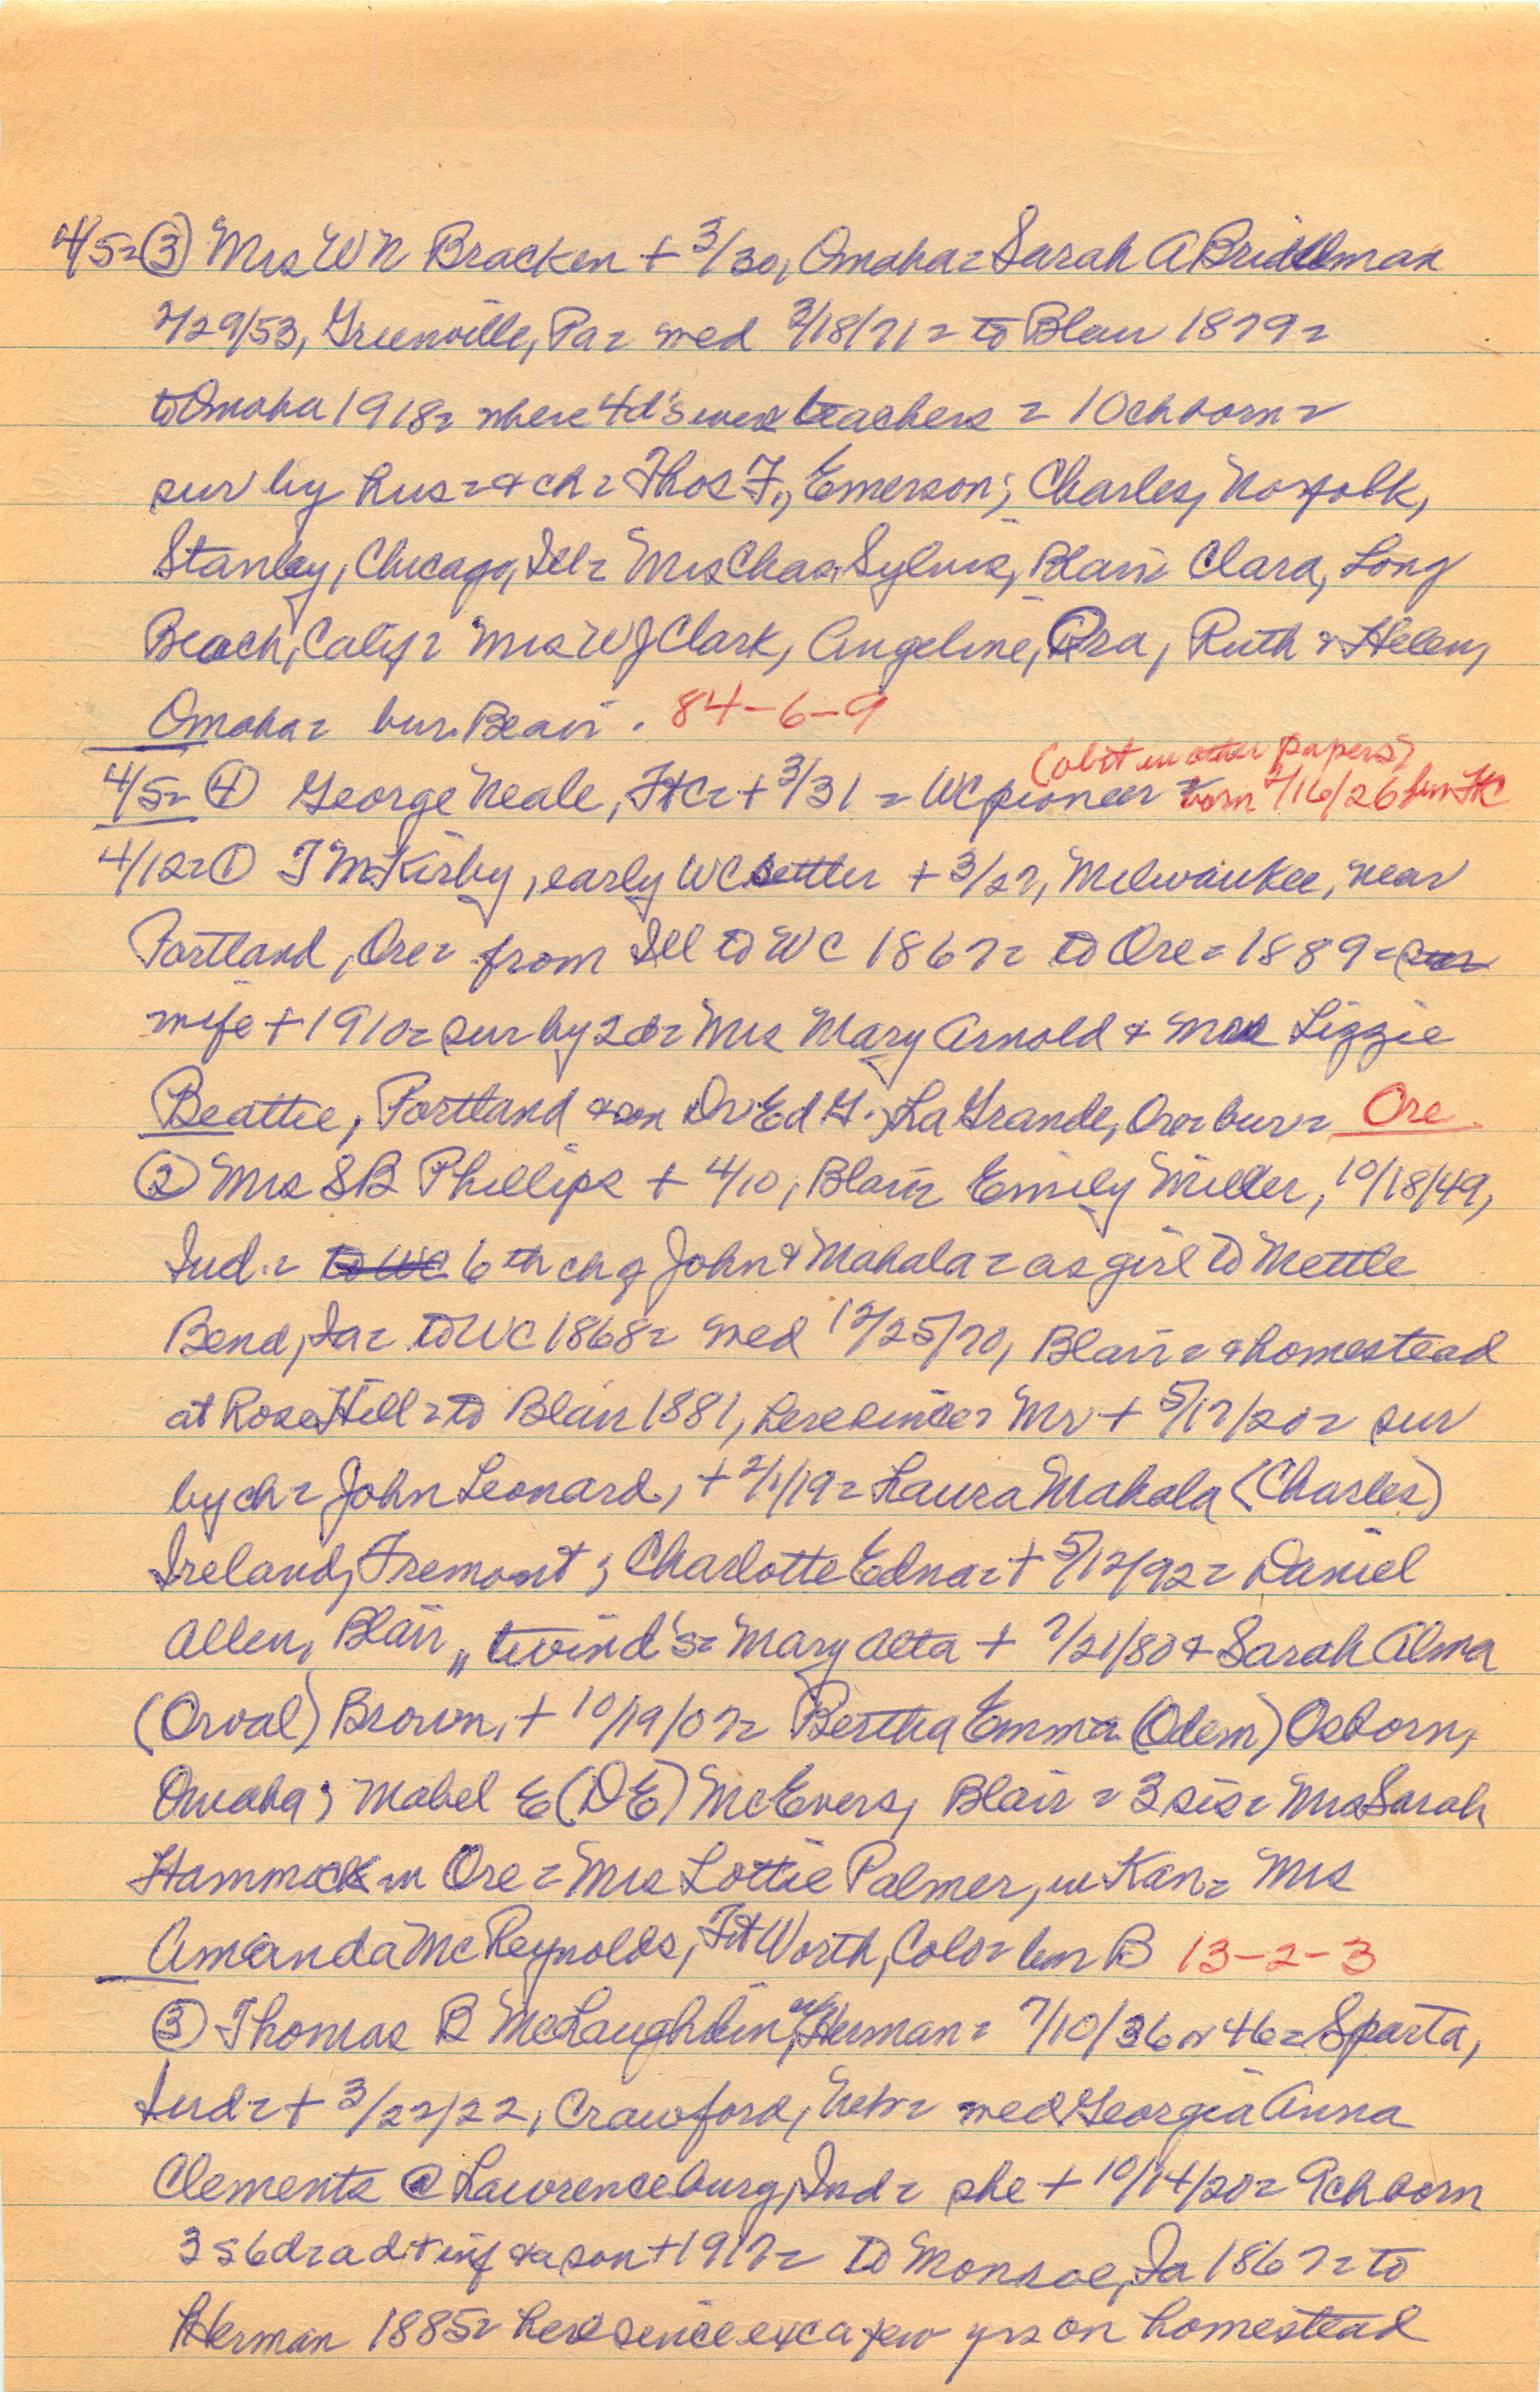 4/5= ③ Mrs W N Bracken + 3/30, Omaha= Sarah A Bridelman
2/29/53, Greenville, Pa= wed 3/18/71= to Blair 1879=
to Omaha 1918= where 4 d's were teachers = 10 ch born=
sur by hus= & ch= Thos F., Emerson; Charles, Norfolk,
Stanley, Chicago, Ill= Mrs Chas. Sylvis, Blair= Clara, Long
Beach, Calif= Mrs W J Clark, Angeline, Ora, Ruth & Helen,
Omaha= bur. Blair. 84-6-9
(obit in other papers)
4/5= ④ George Neale, FtC= + 3/31 = WC pioneer born 2/16/26 bur FtC
4/12= ① T M Kirby, early WC settler + 3/27, Milwaukee, near
Portland, Ore= from Ill to WC 1867= to Ore= 1889= sur
wife + 1910= sur by 2 d= Mrs Mary Arnold & Mrs Lizzie
Beattie, Portland & son Dr Ed G., La Grande, Ore= bur= Ore
② Mrs S B Phillips + 4/10, Blair= Emily Miller, 10/18/49,
Ind.= to WC 6th ch of John & Mahala= as girl to Mettle
Bend, Ia= to WC 1868= wed 12/25/70, Blair= & homestead
at Rose Hill= to Blair 1881, here since= Mr + 5/17/20= sur
by ch= John Leonard, + 2/1/19= Laura Mahala (Charles)
Ireland, Fremont; Charlotte Edna= + 5/12/92= Daniel
Allen, Blair,, twin d's= Mary Alta + 7/21/80 & Sarah Alma
(Orval) Brown, + 10/19/07= Bertha Emma (Odem) Osborn,
Omaha; Mabel E (D E) McEvers, Blair = 3 sis= Mrs Sarah
Hammack in Ore= Mrs Lottie Palmer, in Kan= Mrs
Amanda McReynolds, Ft Worth, Colo= bur B 13-2-3
③ Thomas B McLaughlin, Herman= 7/10/36 or 46= Sparta,
Ind= + 3/22/22, Crawford, Neb= wed Georgia Anna
Clements @ Lawrenceburg, Ind= she + 10/14/20= 9 ch born
3 s 6 d= a d + inf & a son + 1917= to Monroe, Ia 1867= to
Herman 1885= here since exc a few yrs on homestead